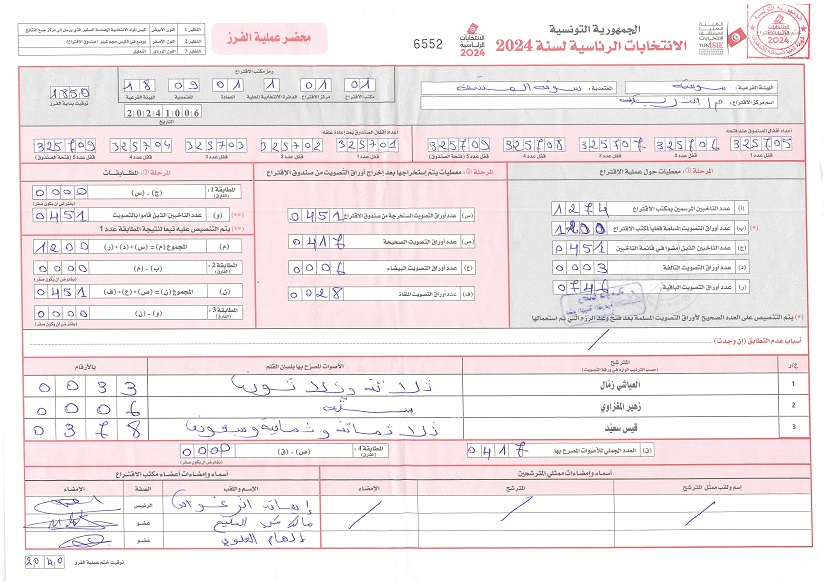 الجمهورية التونسية
الانتخابات الرئاسية لسنة 2024
الانتخابات الرئاسية 2024
6552
محضر عملية الفرز
الهيئة الفرعية: سوسة
المعتمدية:
اسم مركز الاقتراع:
رمز مكتب الاقتراع
01 01 01 01 09 18
مكتب الاقتراع مركز الاقتراع الدائرة الانتخابية المحلية العمادة المعتمدية الهيئة الفرعية
20241006
التاريخ
1850
توقيت بداية الفرز
أعداد أقفال الصندوق عند فتحه
325705 325706 325707 325708 325709
قفل عدد 1 قفل عدد 2 قفل عدد 3 قفل عدد 4 قفل عدد 5 (فتحة الصندوق)
أعداد أقفال الصندوق بعد إعادة غلقه
325701 325702 325703 325704 325709
قفل عدد 1 قفل عدد 2 قفل عدد 3 قفل عدد 4 قفل عدد 5 (فتحة الصندوق)
المرحلة ①: معطيات حول عملية الاقتراع
(أ) عدد الناخبين المرسمين بمكتب الاقتراع 1274
(*) (ب) عدد أوراق التصويت المسلمة فعليا لمكتب الاقتراع 1200
(ج) عدد الناخبين الذين أمضوا في قائمة الناخبين 0451
(د) عدد أوراق التصويت التالفة 0003
(ر) عدد أوراق التصويت الباقية 0746
(*) يتم التنصيص على العدد الصحيح لأوراق التصويت المسلمة بعد فتح وعد الرزم التي تم استعمالها
المرحلة ②: معطيات يتم استخراجها بعد إخراج أوراق التصويت من صندوق الاقتراع
(س) عدد أوراق التصويت المستخرجة من صندوق الاقتراع 0451
(ص) عدد أوراق التصويت الصحيحة 0417
(ع) عدد أوراق التصويت البيضاء 0006
(ف) عدد أوراق التصويت الملغاة 0028
المرحلة ③: المطابقات
المطابقة 1: (الفارق) (ج - س) 0000
(يفترض أن يكون صفر)
(و) عدد الناخبين الذين قاموا بالتصويت (**) 0451
(**) يتم التنصيص عليه تبعا لنتيجة المطابقة عدد 1
(م) المجموع (م) = (س) + (د) + (ر) 1200
المطابقة 2: (الفارق) (ب - م) 0000
(يفترض أن يكون صفر)
(ن) المجموع (ن) = (ص) + (ع) + (ف) 0451
المطابقة 3: (الفارق) (و - ن) 0000
(يفترض أن يكون صفر)
أسباب عدم التطابق (إن وجدت)
ع/ر المترشح الأصوات المصرح بها بلسان القلم بالأرقام
(حسب الترتيب الوارد في ورقة التصويت)
1 العياشي زمّال ثلاثة وثلاثون 0033
2 زهير المغزاوي ستة 0006
3 قيس سعيّد ثلاثمائة وثمانية وسبعون 0378
(ق) العدد الجملي للأصوات المصرح بها 0417
المطابقة 4: (الفارق) (ص - ق) 0000
(يفترض أن يكون صفر)
أسماء وإمضاءات ممثلي المترشحين
اسم ولقب ممثل المترشح المترشح الإمضاء
أسماء وإمضاءات أعضاء مكتب الاقتراع
الإسم واللقب الصفة الإمضاء
الرئيس
عضو
إلهام العلوي عضو
توقيت ختم عملية الفرز 2040